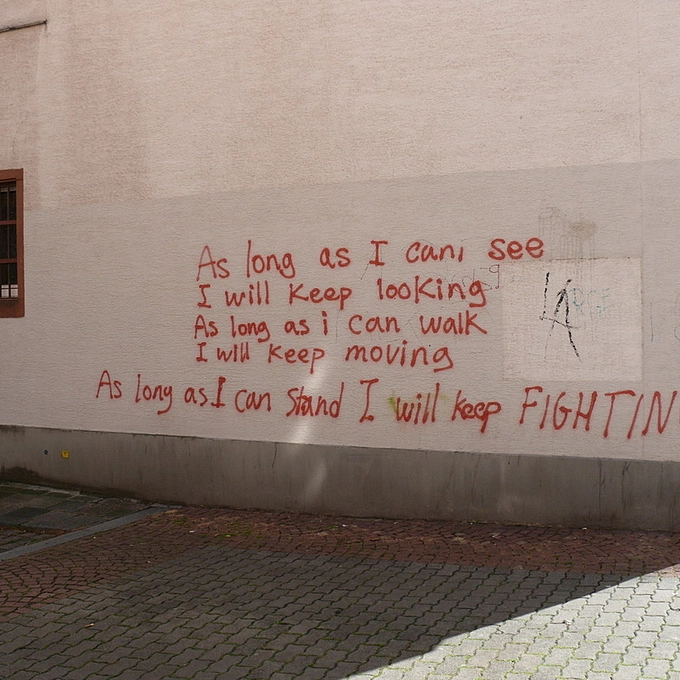 As long as I can, see
I will keep looking
As long as i can walk
I will keep moving
As long as I can stand I will keep FIGHTIN